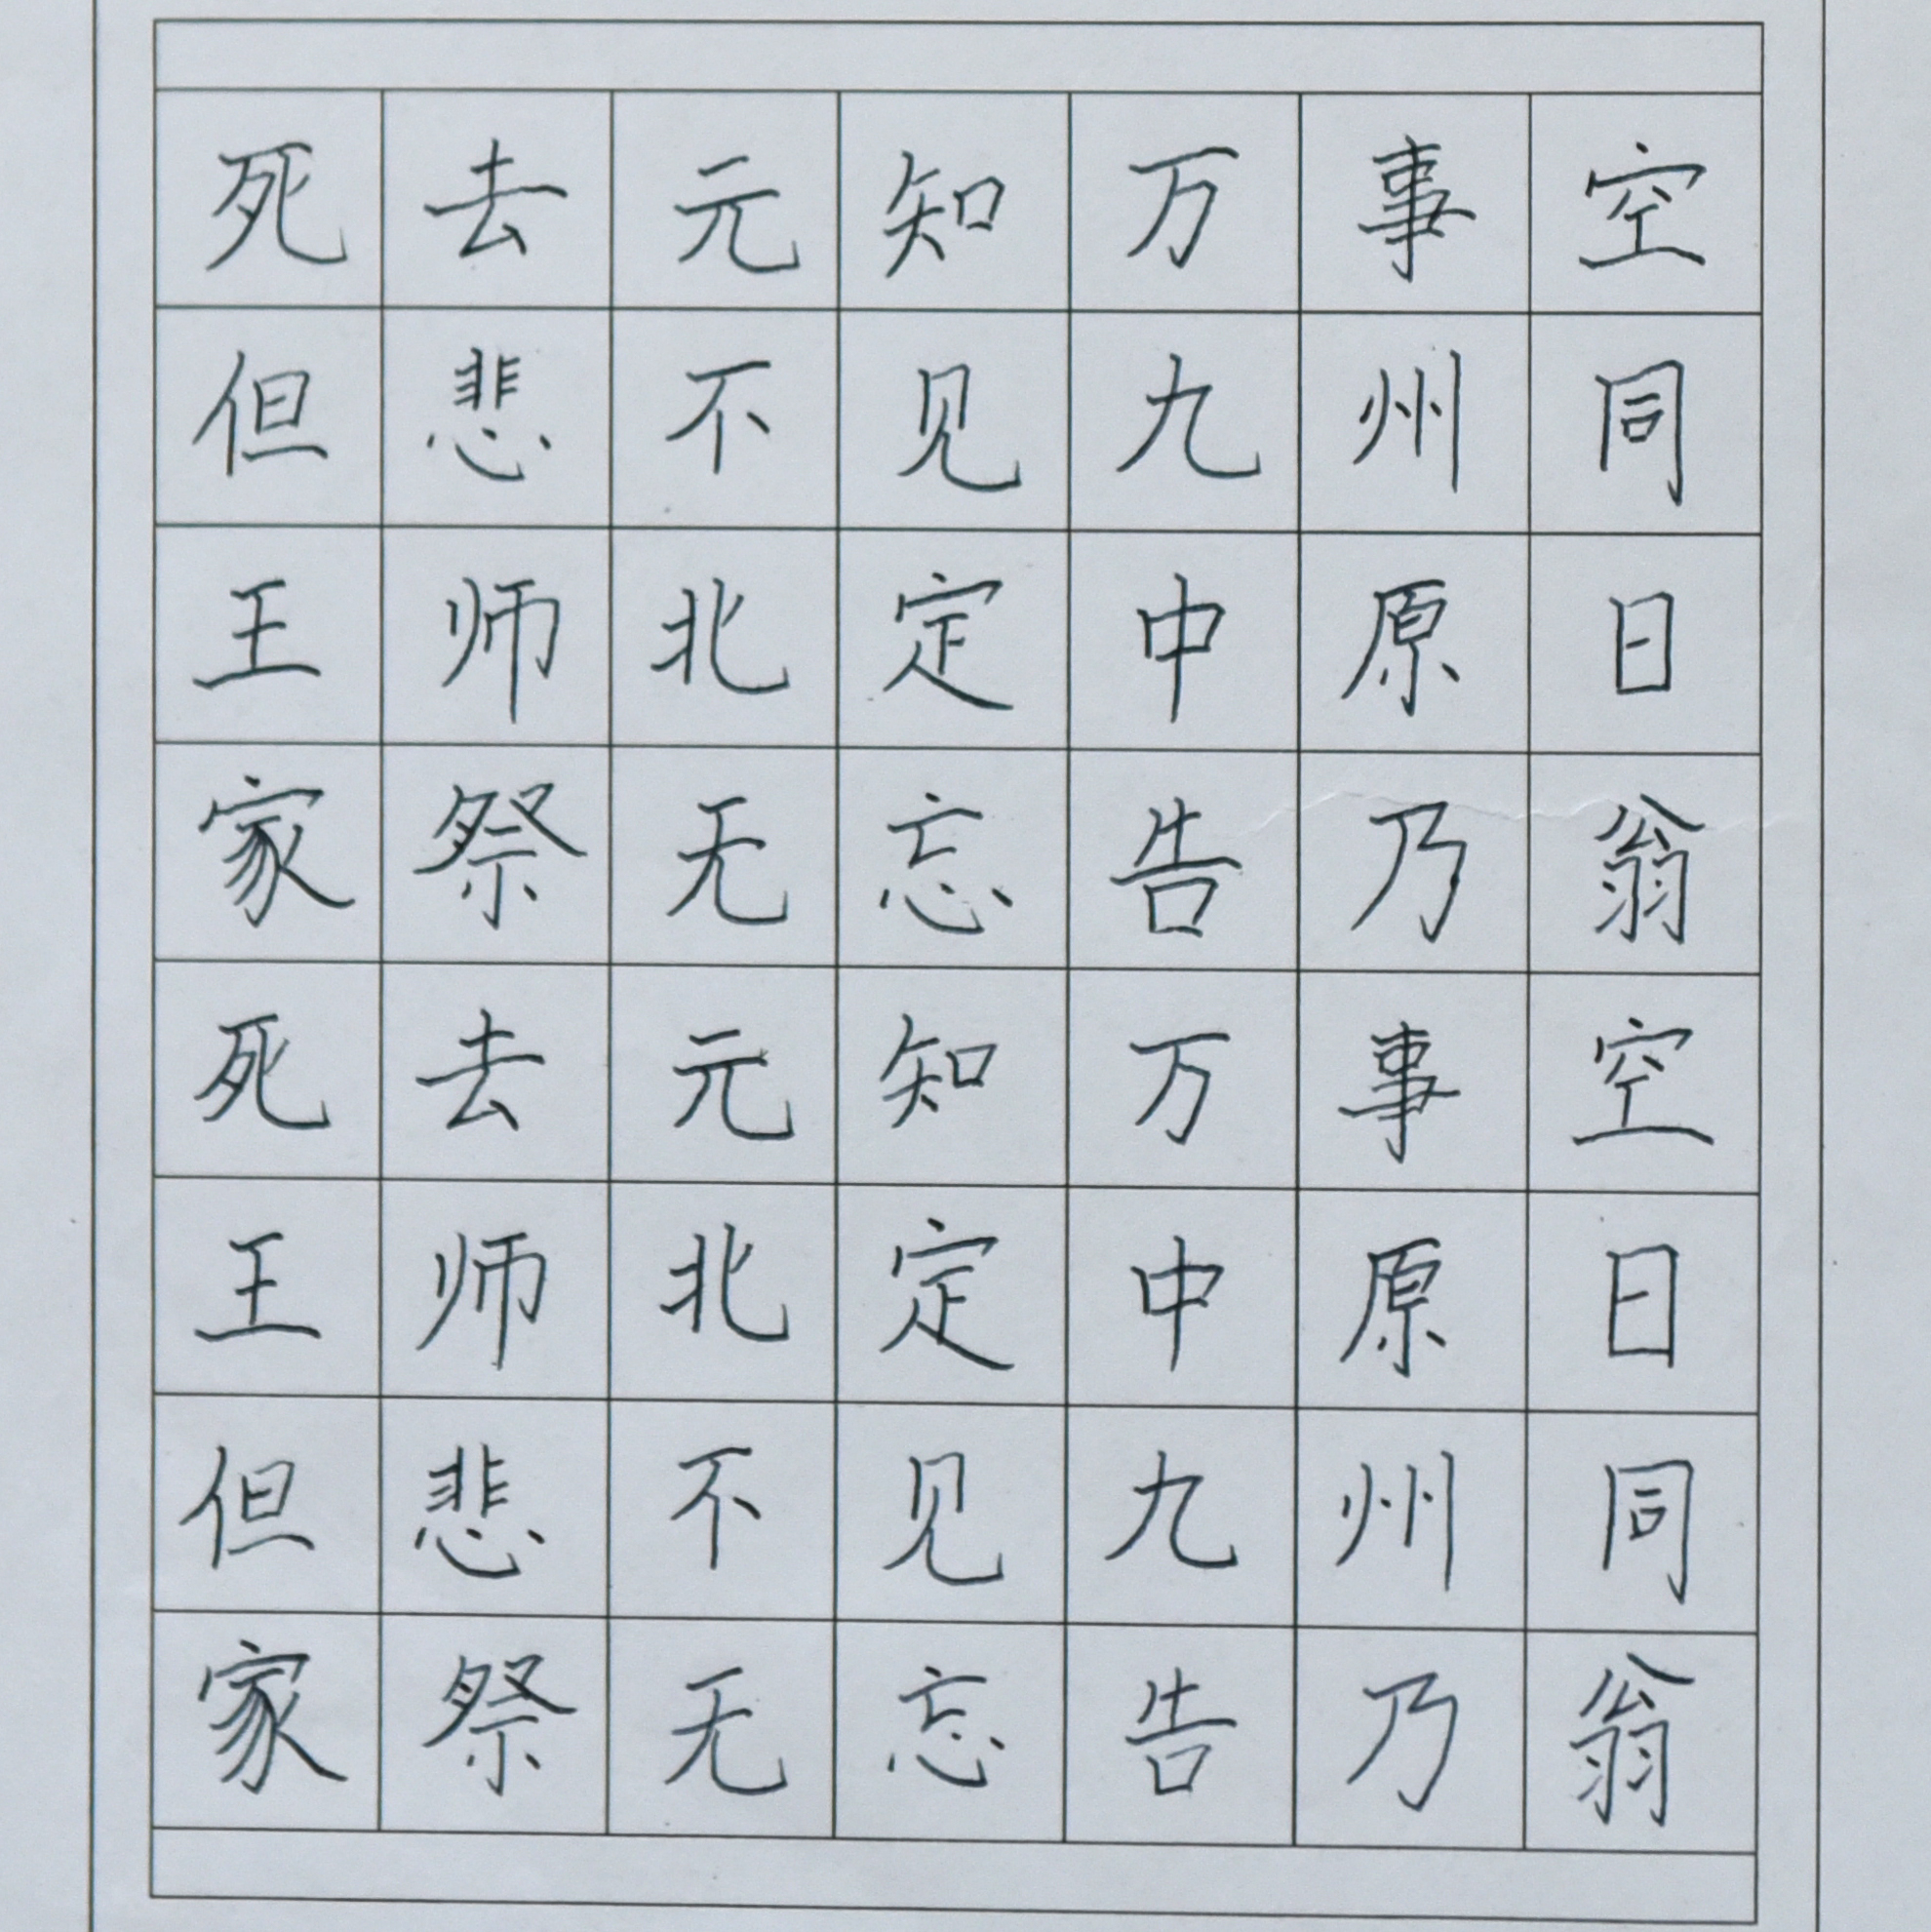 死去元知万事空
但悲不见九州同
王师北定中原日
家祭无忘告乃翁
死去元知万事空
王师北定中原日
但悲不见九州同
家祭无忘告乃翁